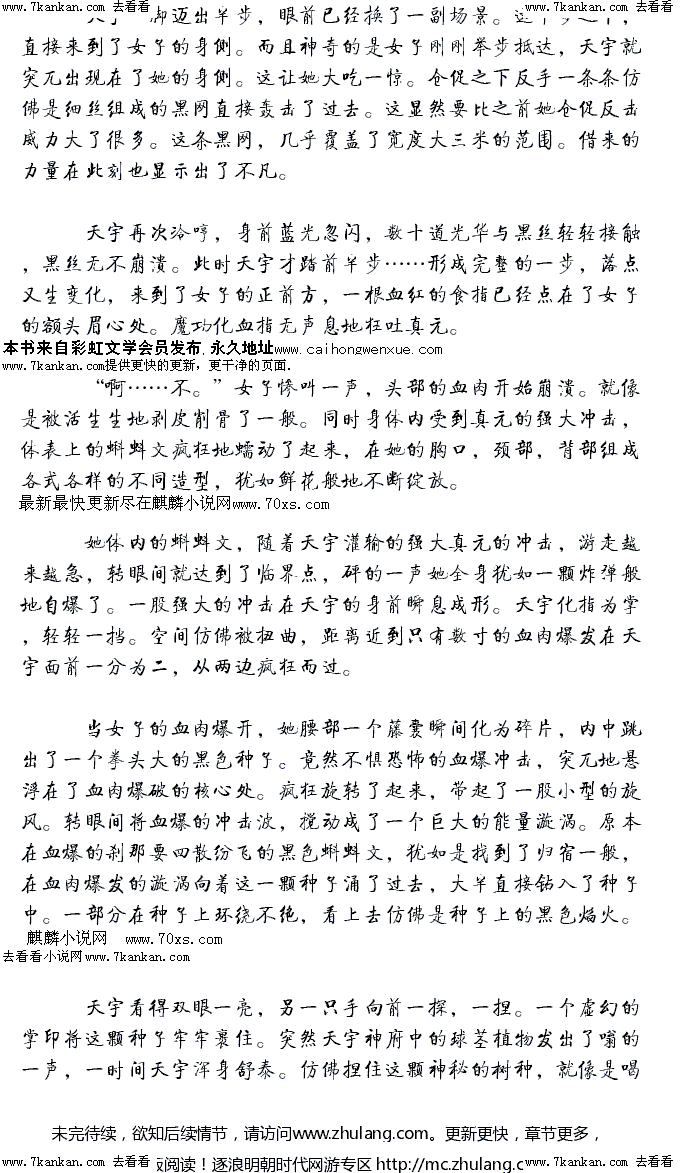 www.7kankan.com 去看看 www.7kankan.com 去看看 www.7kankan.com 去看看 www.7kankan.com 去看看
迈出半步，眼前已经换了一副场景。
直接来到了女子的身侧。而且神奇的是女子刚刚举步抵达，天宇就
突兀出现在了她的身侧。这让她大吃一惊。仓促之下反手一条条仿
佛是细丝组成的黑网直接轰击了过去。这显然要比之前她仓促反击
威力大了很多。这条黑网，几乎覆盖了宽度大三米的范围。借来的
力量在此刻也显示出了不凡。
天宇再次冷哼，身前蓝光忽闪，数十道光华与黑丝轻轻接触
，黑丝无不崩溃。此时天宇才踏前半步……形成完整的一步，落点
又生变化，来到了女子的正前方，一根血红的食指已经点在了女子
的额头眉心处。魔功化血指无声息地狂吐真元。
本书来自彩虹文学会员发布,永久地址www.caihongwenxue.com
www.7kankan.com提供更快的更新，更干净的页面.
“啊……不。”女子惨叫一声，头部的血肉开始崩溃。就像
是被活生生地剥皮削骨了一般。同时身体内受到真元的强大冲击，
体表上的蝌蚪文疯狂地蠕动了起来，在她的胸口，颈部，背部组成
各式各样的不同造型，犹如鲜花般地不断绽放。
最新最快更新尽在麒麟小说网www.70xs.com
她体内的蝌蚪文，随着天宇灌输的强大真元的冲击，游走越
来越急，转眼间就达到了临界点，砰的一声她全身犹如一颗炸弹般
地自爆了。一股强大的冲击在天宇的身前瞬息成形。天宇化指为掌
，轻轻一挡。空间仿佛被扭曲，距离近到只有数寸的血肉爆发在天
宇面前一分为二，从两边疯狂而过。
当女子的血肉爆开，她腰部一个藤囊瞬间化为碎片，内中跳
出了一个拳头大的黑色种子。竟然不惧恐怖的血爆冲击，突兀地悬
浮在了血肉爆破的核心处。疯狂旋转了起来，带起了一股小型的旋
风。转眼间将血爆的冲击波，搅动成了一个巨大的能量漩涡。原本
在血爆的刹那要四散纷飞的黑色蝌蚪文，犹如是找到了归宿一般，
在血肉爆发的漩涡向着这一颗种子涌了过去，大半直接钻入了种子
中。一部分在种子上环绕不绝，看上去仿佛是种子上的黑色焰火。
麒麟小说网 www.70xs.com
去看看小说网www.7kankan.com
天宇看得双眼一亮，另一只手向前一探，一捏。一个虚幻的
掌印将这颗种子牢牢裹住。突然天宇神府中的球茎植物发出了嗡的
一声，一时间天宇浑身舒泰。仿佛捏住这颗神秘的树种，就像是喝
未完待续，欲知后续情节，请访问www.zhulang.com。更新更快，章节更多，
www.7kankan.com 去看看 阅读！逐浪明朝时代网游专区 http://mc.zhulang.com www.7kankan.com 去看看